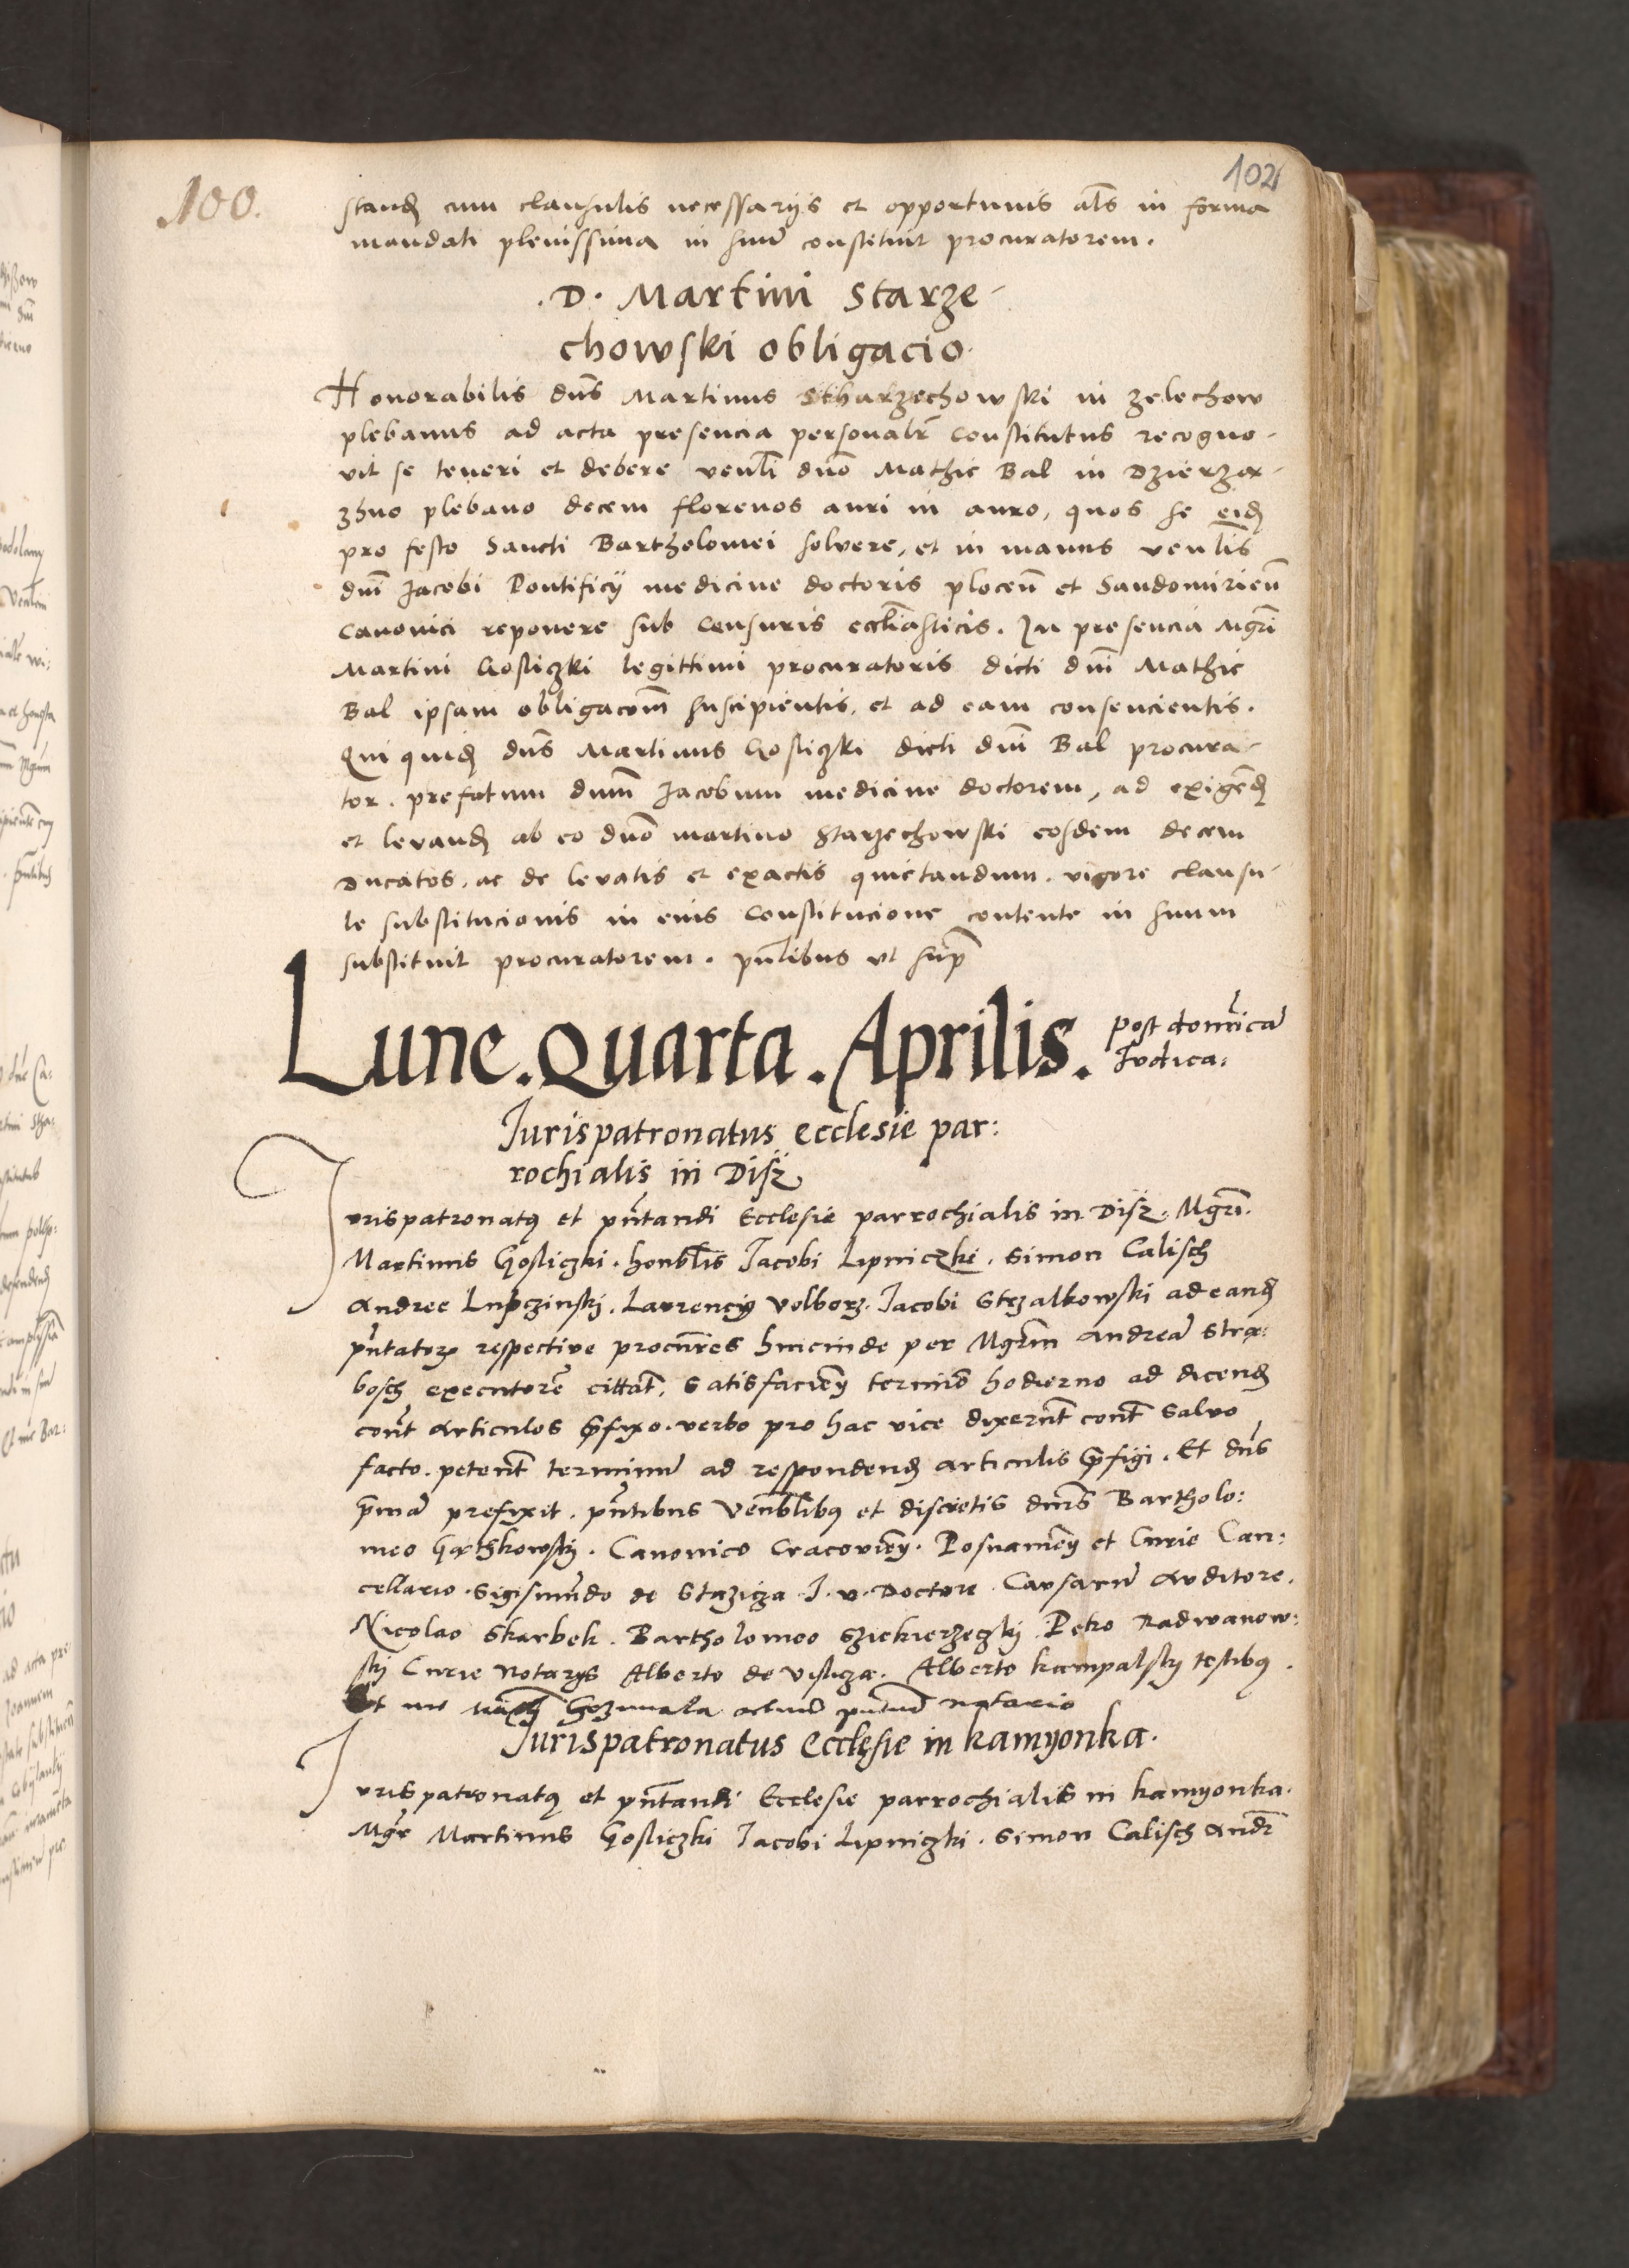 100.
102
stand cum clausulis necessariis et opportunis als in forma
mandati plenissima in suu constituit procuratorem.
.D. Martini Starze-
chowski obligacio.
Honorabilis dns Martinus Stharzechowski in zelechow
plebanus ad acta presencia personalr constitutus recogno-
vit se teneri et debere venli dno Mathie Bal in Dzierza-
zhno plebano decem florenos auri in auro, quos se eid
pro festo Sancti Bartholomei solvere, et in manus venlis
dni Jacobi Pontificij medicine doctoris plocen et Sandomirien
canonici reponere sub censuris eccliasticis. In presencia Mgri
Martini Gosliczki legittimi procuratoris dicti dni Mathie
Bal ipsam obligacom suscipientis, et ad eam consencientis.
Qui quid dns Martinus Gosliczki dicti dni Bal procura-
tor. prefatum dnm Jacobum medicine doctorem, ad exigend
et levand ab eo dno martino Starzechowski eosdem decem
Ducatos, ac de levatis et exactis quietandum. vigore clausu-
le substitucionis in eius constitucione contente in suum
substituit procuratorem. pntibus ut supra
Lune. Quarta. Aprilis. post domica
Judica:
Jurispatronatus ecclesie par:
rochialis in Disz
Jurispatronatq et pntandi Ecclesie parrochialis in Disz. Mgri.
Martinus Gosliczki. honblis Jacobi Lipniczki. Simon Calisch
Andree Lupczinski. Laurencij Volborz. Jacobi Strzalkowski ad eand
pntator respective procures hincinde per Mgrm Andrea Stra:
bosch executore cittat. Satisfacien termio hodierno ad dicend
cont articulos pfixo. verbo pro hac vice dixernt cont Salvo
facto. petent terminu ad respondend articulis pfigi. Et dns
pma prefixit. pntibus Venblibq et discretis dnis Bartholo:
meo Gathkowski. Canonico Cracovien. Posnanien et Curie Can:
cellario. Sigismundo de Strzicza J. v. Doctore. Causaru Auditore.
Nicolao Skarbek. Bartholomeo Sziekierzeczki Petro Radwanow:
ski Curie Notarys Alberto de Visticza. Alberto kampalski testibq.
Et me notario
Jurispatronatus Ecclesie in kamyonka.
Jurispatronatq et pntandi Ecclesie parrochialis in kamyonka.
Mgr Martinus Gosliczki Jacobi Lipniczki. Simon Calisch Andr